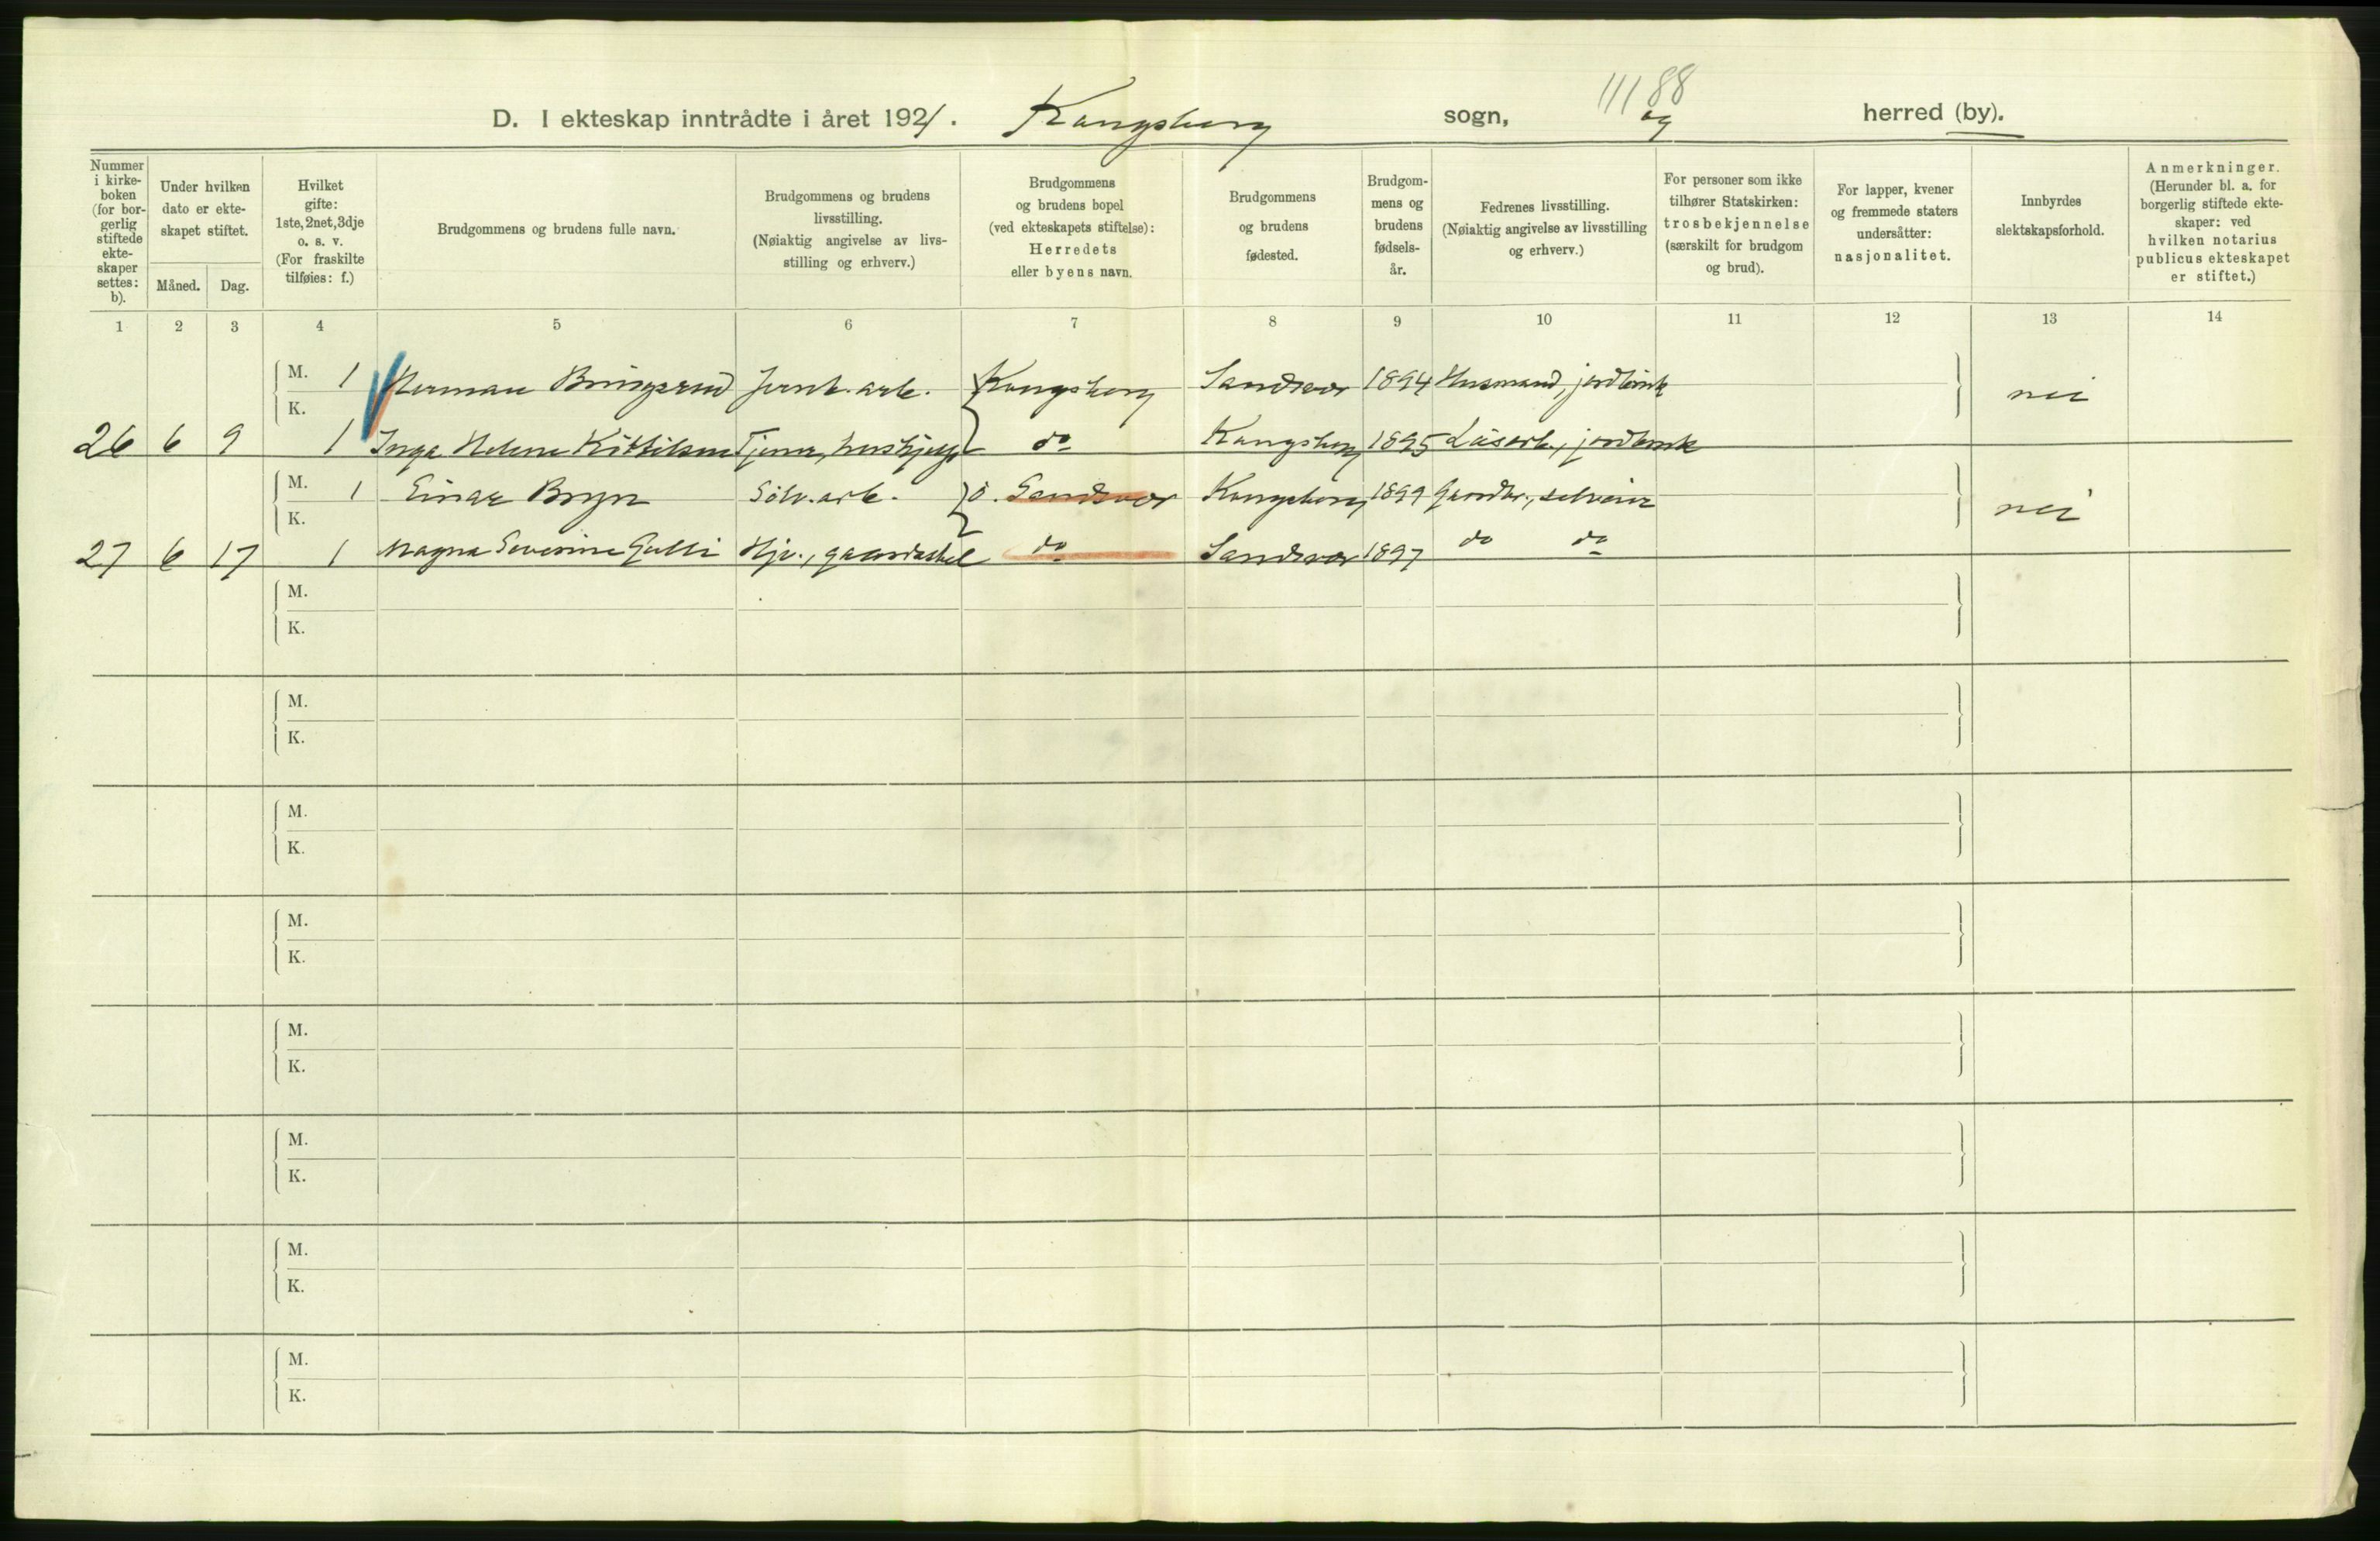 11188
D. I ekteskap inntrådte i året 1921. Kongsberg sogn, og herred (by).
Nummer i kirkeboken (for borgerlig stiftede ekteskaper settes: b).
Under hvilken dato er ekteskapet stiftet.
Måned. Dag.
Hvilket gifte: 1ste, 2net, 3dje o. s. v. (For fraskilte tilføies: f.)
Brudgommens og brudens fulle navn.
Brudgommens og brudens livsstilling. (Nøiaktig angivelse av livsstilling og erhverv.)
Brudgommens og brudens bopel (ved ekteskapets stiftelse): Herredets eller byens navn.
Brudgommens og brudens fødested.
Brudgommens og brudens fødselsår.
Fedrenes livsstilling. (Nøiaktig angivelse av livsstilling og erhverv.)
For personer som ikke tilhører Statskirken: trosbekjennelse (særskilt for brudgom og brud).
For lapper, kvener og fremmede staters undersåtter: nasjonalitet.
Innbyrdes slektskapsforhold.
Anmerkninger. (Herunder bl. a. for borgerlig stiftede ekteskaper: ved hvilken notarius publicus ekteskapet er stiftet.)
1 2 3 4 5 6 7 8 9 10 11 12 13 14
M. 1 Herman Bringsrud Jernb. arb. Kongsberg Sandsvær 1894 Husmand, jordbruk
K. nei
26 6 9 1 Inga Helene Kittilsen Tjener, hushjelp do Kongsberg 1895 Løsarb., jordbruk
M. 1 Einar Bryn Sölv. arb. ö. Sandsvær Kongsberg 1899 Gaardbr., selveier
K. nei
27 6 17 1 Magna Severine Gulli Hjv., gaardsstel do Sandsvær 1897 do do
M.
K.
M.
K.
M.
K.
M.
K.
M.
K.
M.
K.
M.
K.
M.
K.